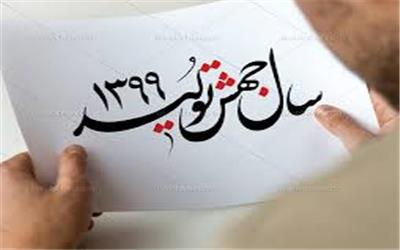 سال جهش تولید ۱۳۹۹